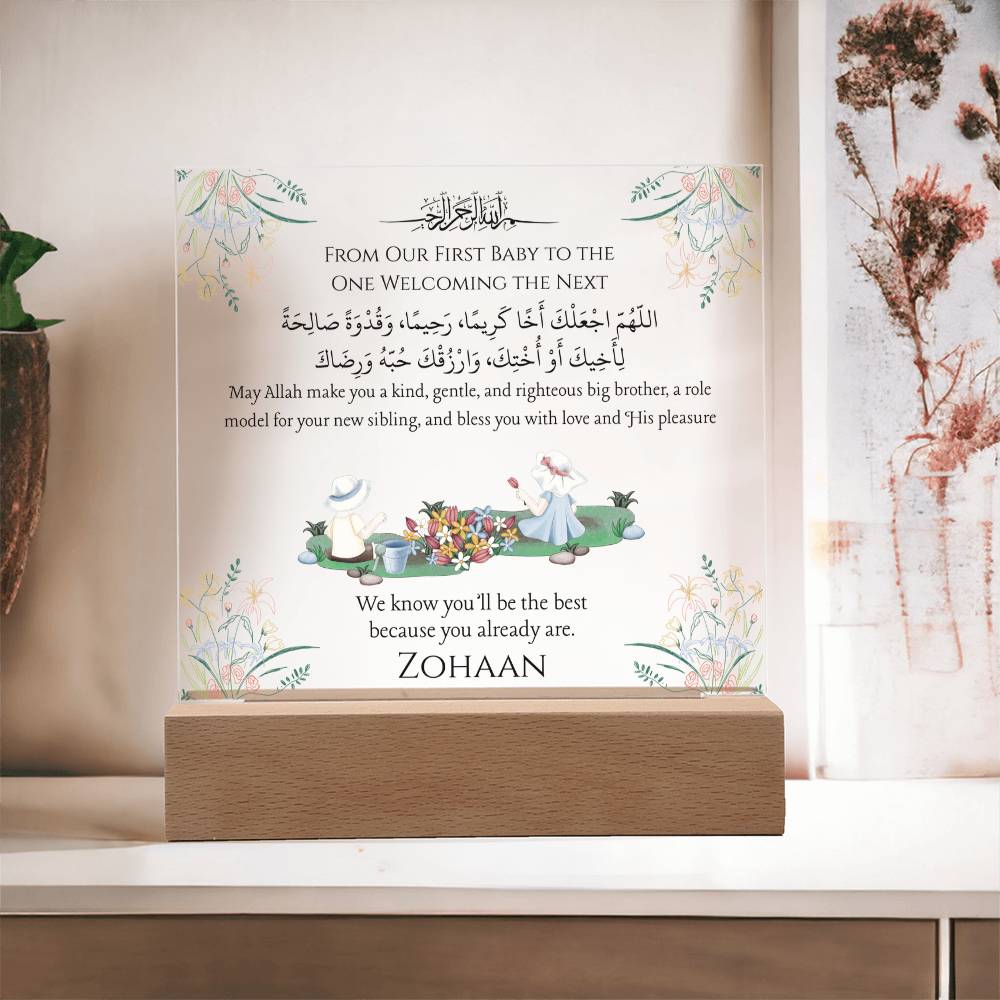 بسم الله الرحمن الرحيم
From Our First Baby to the
One Welcoming the Next
اللّهُمّ اجْعَلْكَ أَخًا كَرِيمًا، رَحِيمًا، وَقُدْوَةً صَالِحَةً
لِأَخِيكَ أَوْ أُخْتِكَ، وَارْزُقْكَ حُبّهُ وَرِضَاكَ
May Allah make you a kind, gentle, and righteous big brother, a role
model for your new sibling, and bless you with love and His pleasure
We know you'll be the best
because you already are.
Zohaan